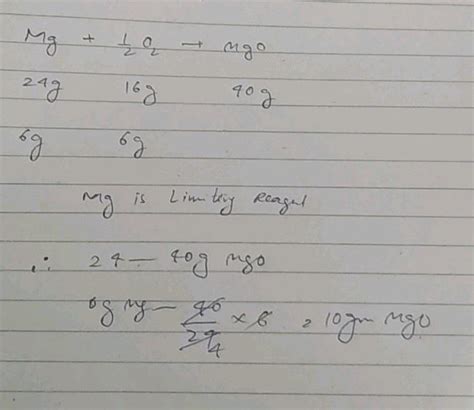 Mg + 1/2 O2 → MgO
24g 16g 40g
6g 6g
Mg is Limiting Reagent
∴ 24 — 40g MgO
6g Mg — 40/24 × 6 = 10gm MgO
4